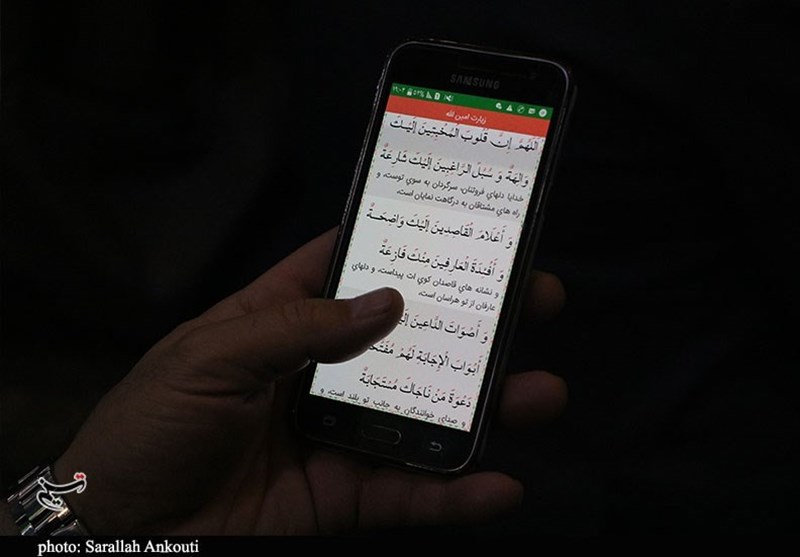 SAMSUNG
زیارت امین الله
اَللّهُمَّ اِنَّ قُلُوبَ الْمُخْبِتِینَ اِلَیْكَ
وَالِهَةٌ وَ سُبُلَ الرَّاغِبِینَ اِلَیْكَ شَارِعَةٌ
خدایا دلهاي فروتنان، سرگردان به سوي توست، و
راه هاي مشتاقان به درگاهت نمایان است،
وَ أَعْلَامَ الْقَاصِدِینَ اِلَیْكَ وَاضِحَةٌ
وَ أَفْئِدَةَ الْعَارِفِینَ مِنْكَ فَازِعَةٌ
و نشانه هاي قاصدان كوي ات پیداست، و دلهاي
عارفان از تو هراسان است،
وَ أَصْوَاتَ الدَّاعِینَ
أَبْوَابَ الْاِجَابَةِ لَهُمْ
دَعْوَةَ مَنْ نَاجَاكَ مُسْتَجَابَةٌ
و صداي خوانندگان به جانب تو بلند است، و
تسنیم
photo: Sarallah Ankouti